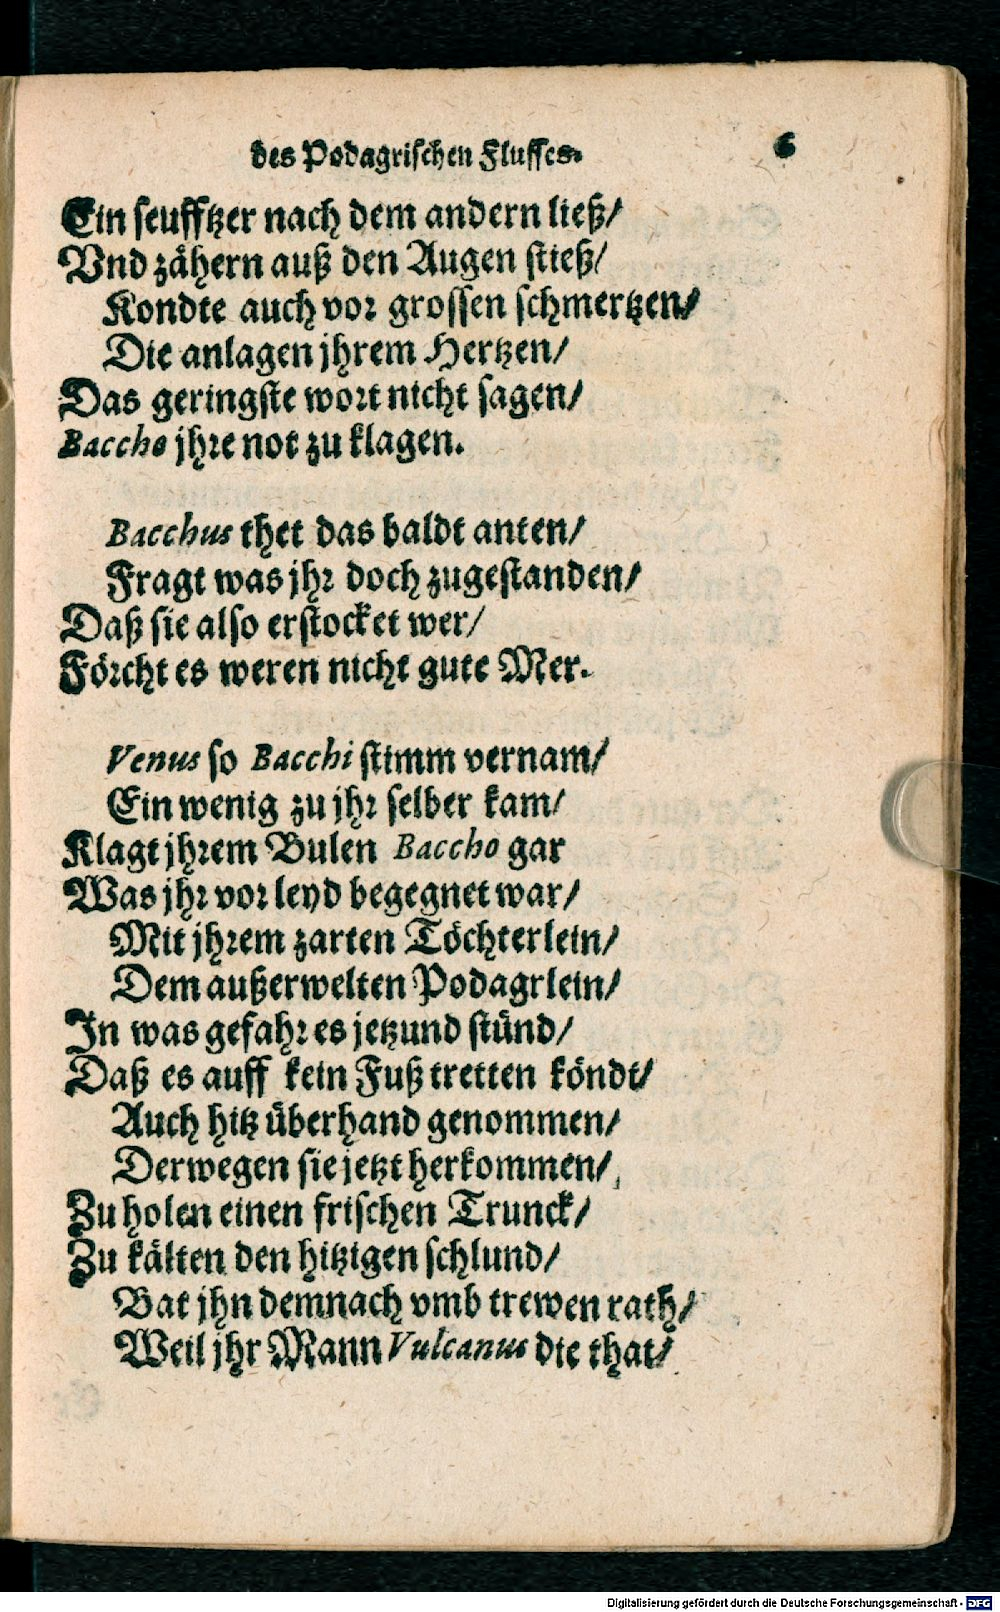 des Podagrischen Flusses.
6
Ein seufftzer nach dem andern ließ/
Vnd zähern auß den Augen stieß/
Kondte auch vor grossen schmertzen/
Die anlagen jhrem Hertzen/
Das geringste wort nicht sagen/
Baccho jhre not zu klagen.
Bacchus thet das baldt anten/
Fragt was jhr doch zugestanden/
Daß sie also erstocket wer/
Förcht es weren nicht gute Mer.
Venus so Bacchi stimm vernam/
Ein wenig zu jhr selber kam/
Klagt jhrem Bulen Baccho gar
Was jhr vor leyd begegnet war/
Mit jhrem zarten Töchterlein/
Dem außerwelten Podagrlein/
In was gefahr es jetzund stünd/
Daß es auff kein Fuß tretten köndt/
Auch hitz überhand genommen/
Derwegen sie jetzt herkommen/
Zu holen einen frischen Trunck/
Zu kälten den hitzigen schlund/
Bat jhn demnach vmb trewen rath/
Weil jhr Mann Vulcanus die that/
Digitalisierung gefördert durch die Deutsche Forschungsgemeinschaft - DFG